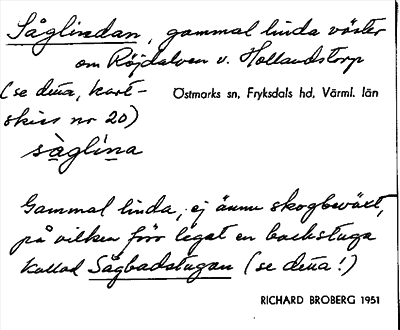 Såglindan, gammal linda väster
om Röjdalven v. Hollandstorp
(se detta, kart-
Östmarks sn, Fryksdals hd, Värml. län
skiss nr 20)
sàglina
Gammal linda, ej ännu skogbevuxt,
på vilken förr legat en backstuga
kallad Sågbadstugan (se detta!)
RICHARD BROBERG 1951